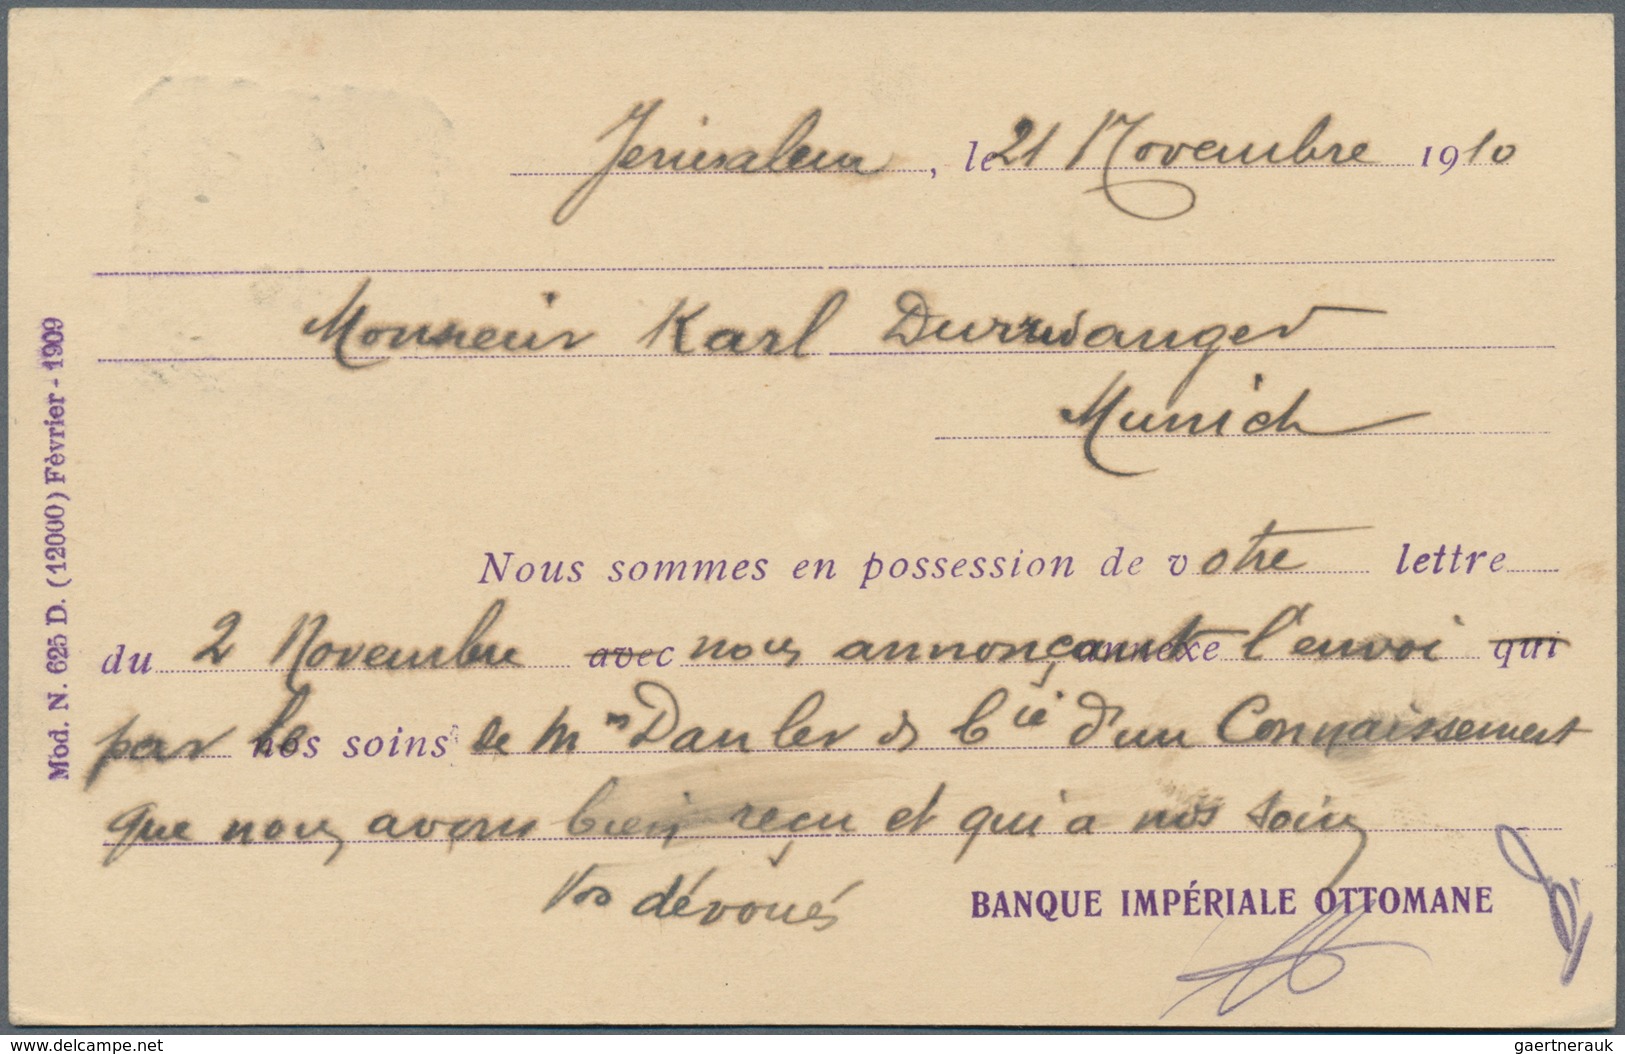 Jérusalem, le 21 Novembre 1910
Monsieur Karl Durrwanger
Munich
Nous sommes en possession de votre lettre
du 2 Novembre avec nous annonçant annexe l'envoi qui
par les nos soins de Mrs & Cie d'un Connaissement
que nous avons bien reçu et qui a nos soins
Vos dévoués
BANQUE IMPÉRIALE OTTOMANE
Mod. N. 625 D. (12000) Fèvrier - 1909
delcampe.net
gaertnerauk